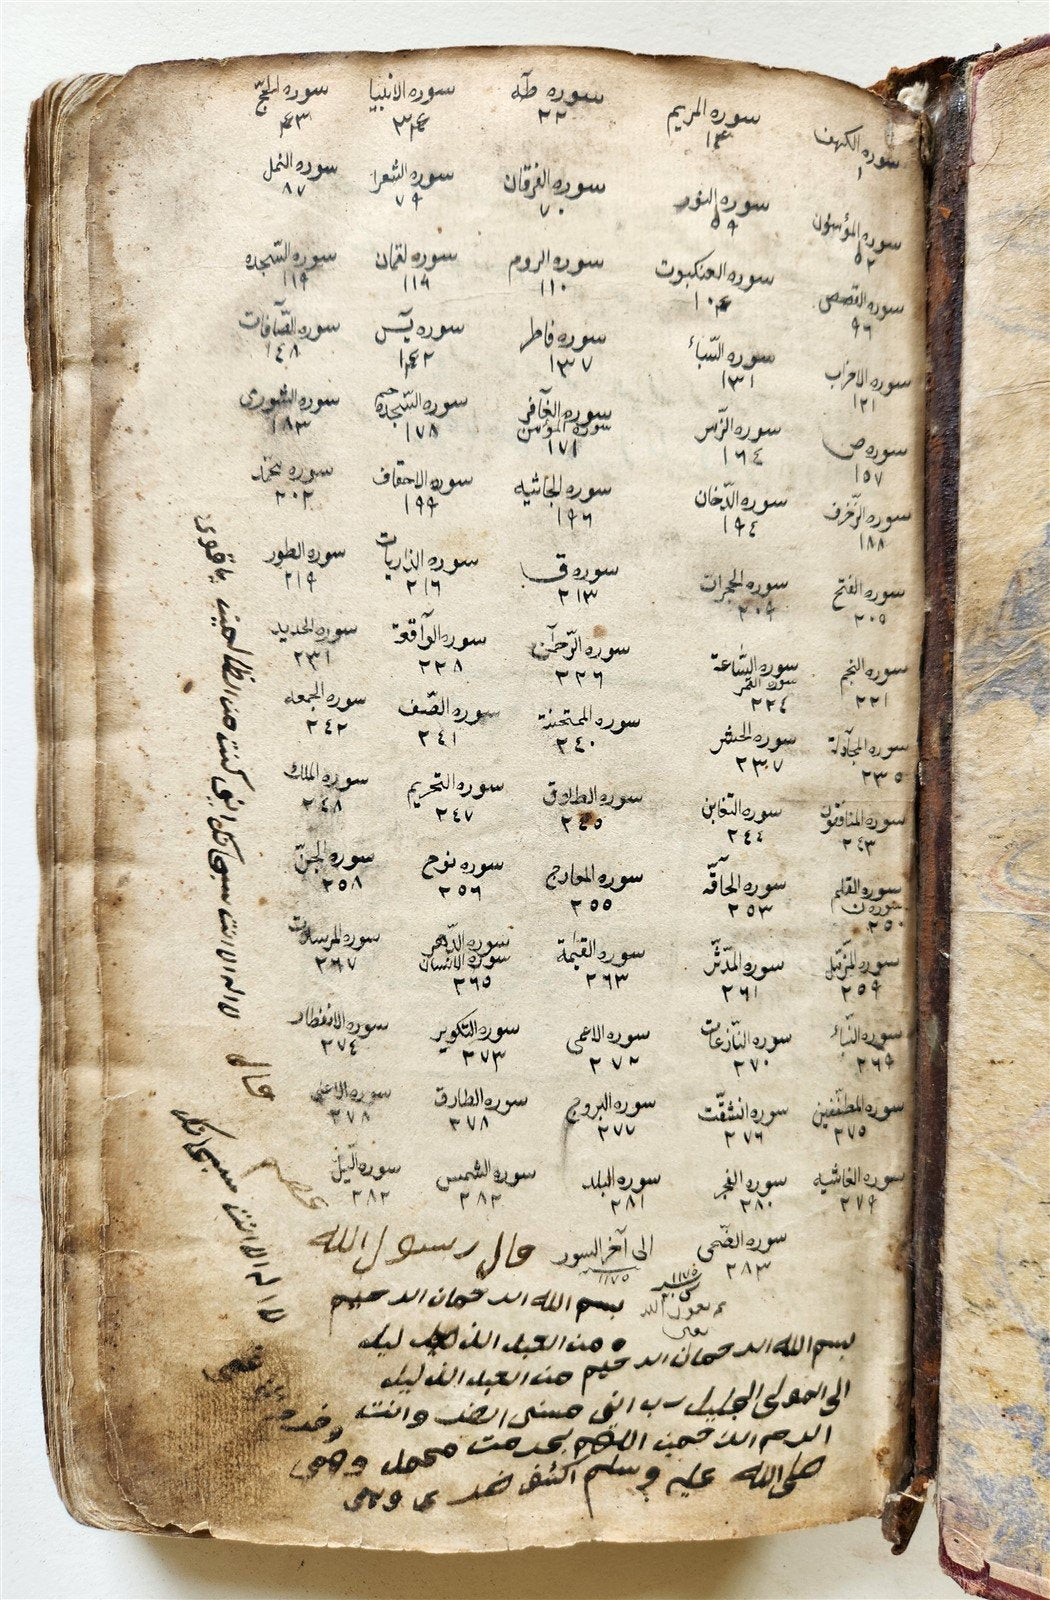 سوره الكهف سوره المريم سوره طه سوره الانبيا سوره الحج
١ ١٤ ٢٢ ٣٤ ٤٣
سوره المؤمنون سوره النور سوره الفرقان سوره الشعرا سوره النمل
٥٢ ٥٩ ٧٠ ٧٩ ٨٧
سوره القصص سوره العنكبوت سوره الروم سوره لقمان سوره السجده
٩٦ ١٠٤ ١١٠ ١١٦ ١١٩
سوره الاحزاب سوره السباء سوره فاطر سوره يس سوره الصافات
١٢١ ١٣١ ١٣٧ ١٤٢ ١٤٨
سوره ص سوره الزمر سوره الغافر سوره السجده حم سوره الشورى
سوره المؤمن
١٥٧ ١٦٤ ١٧١ ١٧٨ ١٨٣
سوره الزخرف سوره الدخان سوره الجاثيه سوره الاحقاف سوره محمد
١٨٨ ١٩٤ ١٩٦ ١٩٩ ٢٠٢
سوره الفتح سوره الحجرات سوره ق سوره الذاريات سوره الطور
٢٠٥ ٢٠٩ ٢١٣ ٢١٦ ٢١٩
سوره النجم سوره الساعة سوره الرحمن سوره الواقعة سوره الحديد
سوره القمر
٢٢١ ٢٢٤ ٢٢٦ ٢٢٨ ٢٣١
سوره المجادلة سوره الحشر سوره الممتحنة سوره الصف سوره الجمعه
٢٣٥ ٢٣٧ ٢٤٠ ٢٤١ ٢٤٢
سوره المنافقون سوره التغابن سوره الطلاق سوره التحريم سوره الملك
٢٤٣ ٢٤٤ ٢٤٥ ٢٤٧ ٢٤٨
سوره القلم سوره الحاقة سوره المعارج سوره نوح سوره الجن
سوره ن
٢٥٠ ٢٥٣ ٢٥٥ ٢٥٦ ٢٥٨
سوره المزمل سوره المدثر سوره القيمة سوره الدهر سوره المرسلات
سوره الانسان
٢٥٩ ٢٦١ ٢٦٣ ٢٦٥ ٢٦٧
سوره النباء سوره النازعات سوره الاعمى سوره التكوير سوره الانفطار
٢٦٩ ٢٧٠ ٢٧٢ ٢٧٣ ٢٧٤
سوره المطففين سوره انشقت سوره البروج سوره الطارق سوره الاعلى
٢٧٥ ٢٧٦ ٢٧٧ ٢٧٨ ٢٧٨
سوره الغاشيه سوره الفجر سوره البلد سوره الشمس سوره اليل
٢٧٩ ٢٨٠ ٢٨١ ٢٨٢ ٢٨٢
سوره الضحى الى آخر السور قال رسول الله
٢٨٣ ١١٧٥
١١٧٥
بسم الله الرحمان الرحيم
بسم الله الرحمان الرحيم من العبد الذليل
من العبد الذليل
الى المولى الجليل رب اني مسني الضر وانت
ارحم الراحمين اللهم بحرمت محمد
صلى الله عليه وسلم اكشف ضري
لا اله الا انت سبحانك اني كنت من الظالمين يا قوى
قال
لا اله الا انت سبحانك